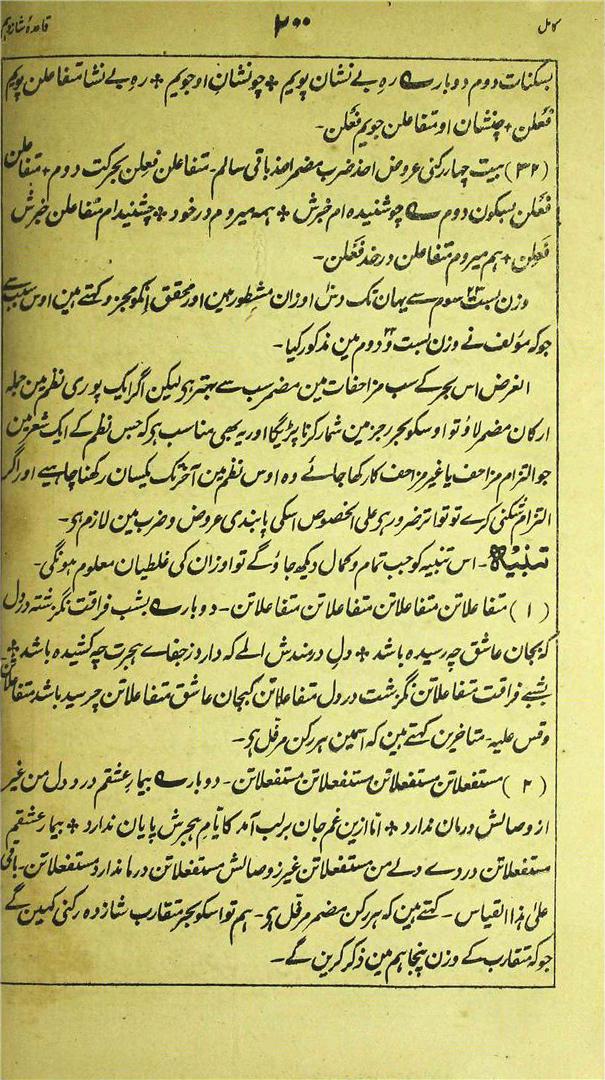 کامل ۲۰۰ قاعدۂ شانزدہم
بسکنات دوم دوبارے رہِ بے نشان پویم * چو نشانِ او جویم * رہِ بے نشا متفاعلن پویم
فعْلن * چنشان او متفاعلن جویم فعْلن۔
(۳۲) بیت چہار رکنی عروض احذ ضرب مضمر احذ باقی سالم۔ متفاعلن فعِلن بحرکت دوم * متفاعلن
فعْلن بسکون دوم ے چو شنیدہ ام خبرش * ہمہ میروم در خود * چشنیدام متفاعلن خبرش
فعِلن * ہم میروم متفاعلن در خد فعْلن۔
وزن بست ۲۳ سوم سے یہان تک دس اوزان مشطور ہین اور محقق انکو مجزو کہتے ہین اوس سبب سے
جو کہ مؤلف نے وزن بست و دوم ۲۲ مین مذکور کیا۔
الغرض اس بحر کے سب مزاحفات مین مضمر سب سے بہتر ہی لیکن اگر ایک پوری نظم مین جملہ
ارکان مضمر لاؤ تو اوسکو بحر رجز مین شمار کرنا پڑیگا اور یہ بھی مناسب ہو کہ جس نظم کے ایک شعر مین
جو التزام مزاحف یا غیر مزاحف کا رکھا جائے وہ اوس نظم مین آخر تک یکسان رکھنا چاہیے اور اگر
التزام شکنی کرے تو تواتر ضرور ہو علی الخصوص اسکی پابندی عروض و ضرب مین لازم ہو۔
تنبیہ۔ اس تنبیہ کو جب تمام و کمال دیکھ جاؤ گے تو اوزان کی غلطیان معلوم ہونگی۔
(۱) متفاعلاتن متفاعلاتن متفاعلاتن متفاعلاتن۔ دو بارے بشب فراقت نگزشتہ در دل
کہ بجان عاشق چہ رسیدہ باشد * دلِ درمندش المے کہ دارد ز جفاے ہجرت چہ کشیدہ باشد *
بشبے فراقت متفاعلاتن نگزشت در دل متفاعلاتن کبجان عاشق متفاعلاتن چرسید باشد متفاعلاتن
و قس علیہ۔ متاخرین کہتے ہین کہ اسمین ہر رکن مرفل ہو۔
(۲) مستفعلاتن مستفعلاتن مستفعلاتن مستفعلاتن۔ دو بارے بیمارِ عشقم درد دل من غیر
از وصالش درمان ندارد * اما ازین غم جان بر لب آمد کایام ہجرش پایان ندارد * بیمار عشقم
مستفعلاتن دردے دلے من مستفعلاتن غیرز وصالش مستفعلاتن درما ندارد مستفعلاتن۔ باقی
علیٰ ہذا القیاس۔ کہتے ہین کہ ہر رکن مضمر مرفل ہو۔ ہم تو اسکو بحر متقارب شانزدہ رکنی کہین گے
جو کہ متقارب کے وزن پنجاہم مین ذکر کرین گے۔